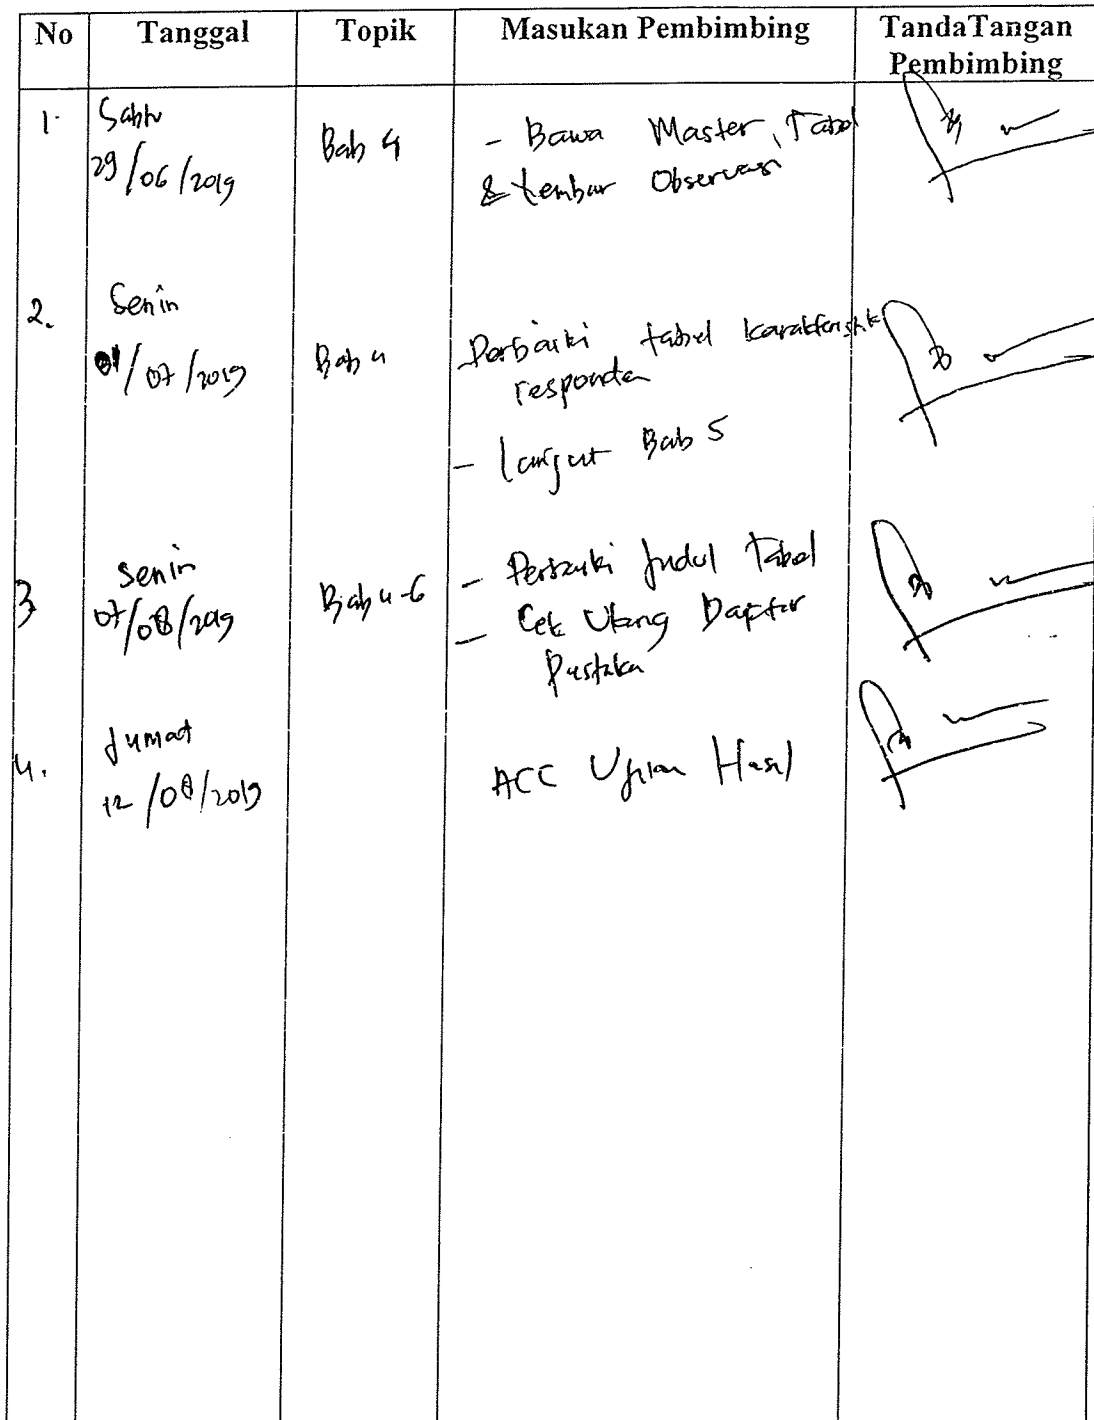 No Tanggal Topik Masukan Pembimbing TandaTangan
Pembimbing
1. Sabtu
29/06/2019
Bab 4
- Bawa Master, Tabel
& Lembar Observasi
2. Senin
01/07/2019
Bab 4
Perbaiki tabel karakteristik
responden
- lanjut Bab 5
3 Senin
07/08/2019
Bab 4-6
- Perbaiki Judul Tabel
- Cek Ulang Daftar
Pustaka
4. Jumat
12/08/2019
ACC Ujian Hasil